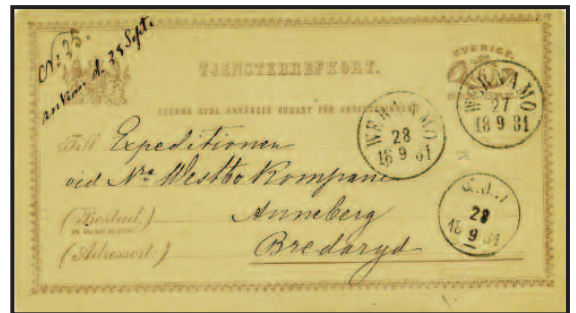 No 35.
ankom d. 28 Sept.
SVERIGE.
TJENSTEBREFKORT.
WERNAMO
27
18 9 81
WERNAMO
28
18 9 81
Till Expeditionen
vid Nra Westbo Kompani
(Bostad:) Anneberg
(Adressort:) Bredaryd
28
18 9 81